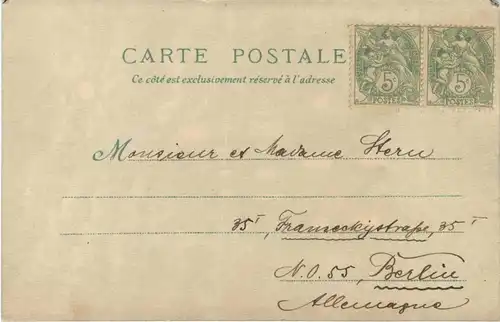 CARTE POSTALE
Ce côté est exclusivement réservé à l'adresse
5c 5c
POSTES POSTES
Monsieur et Madame Stern
35I Franseckystraße, 35I
N.O. 55, Berlin
Allemagne